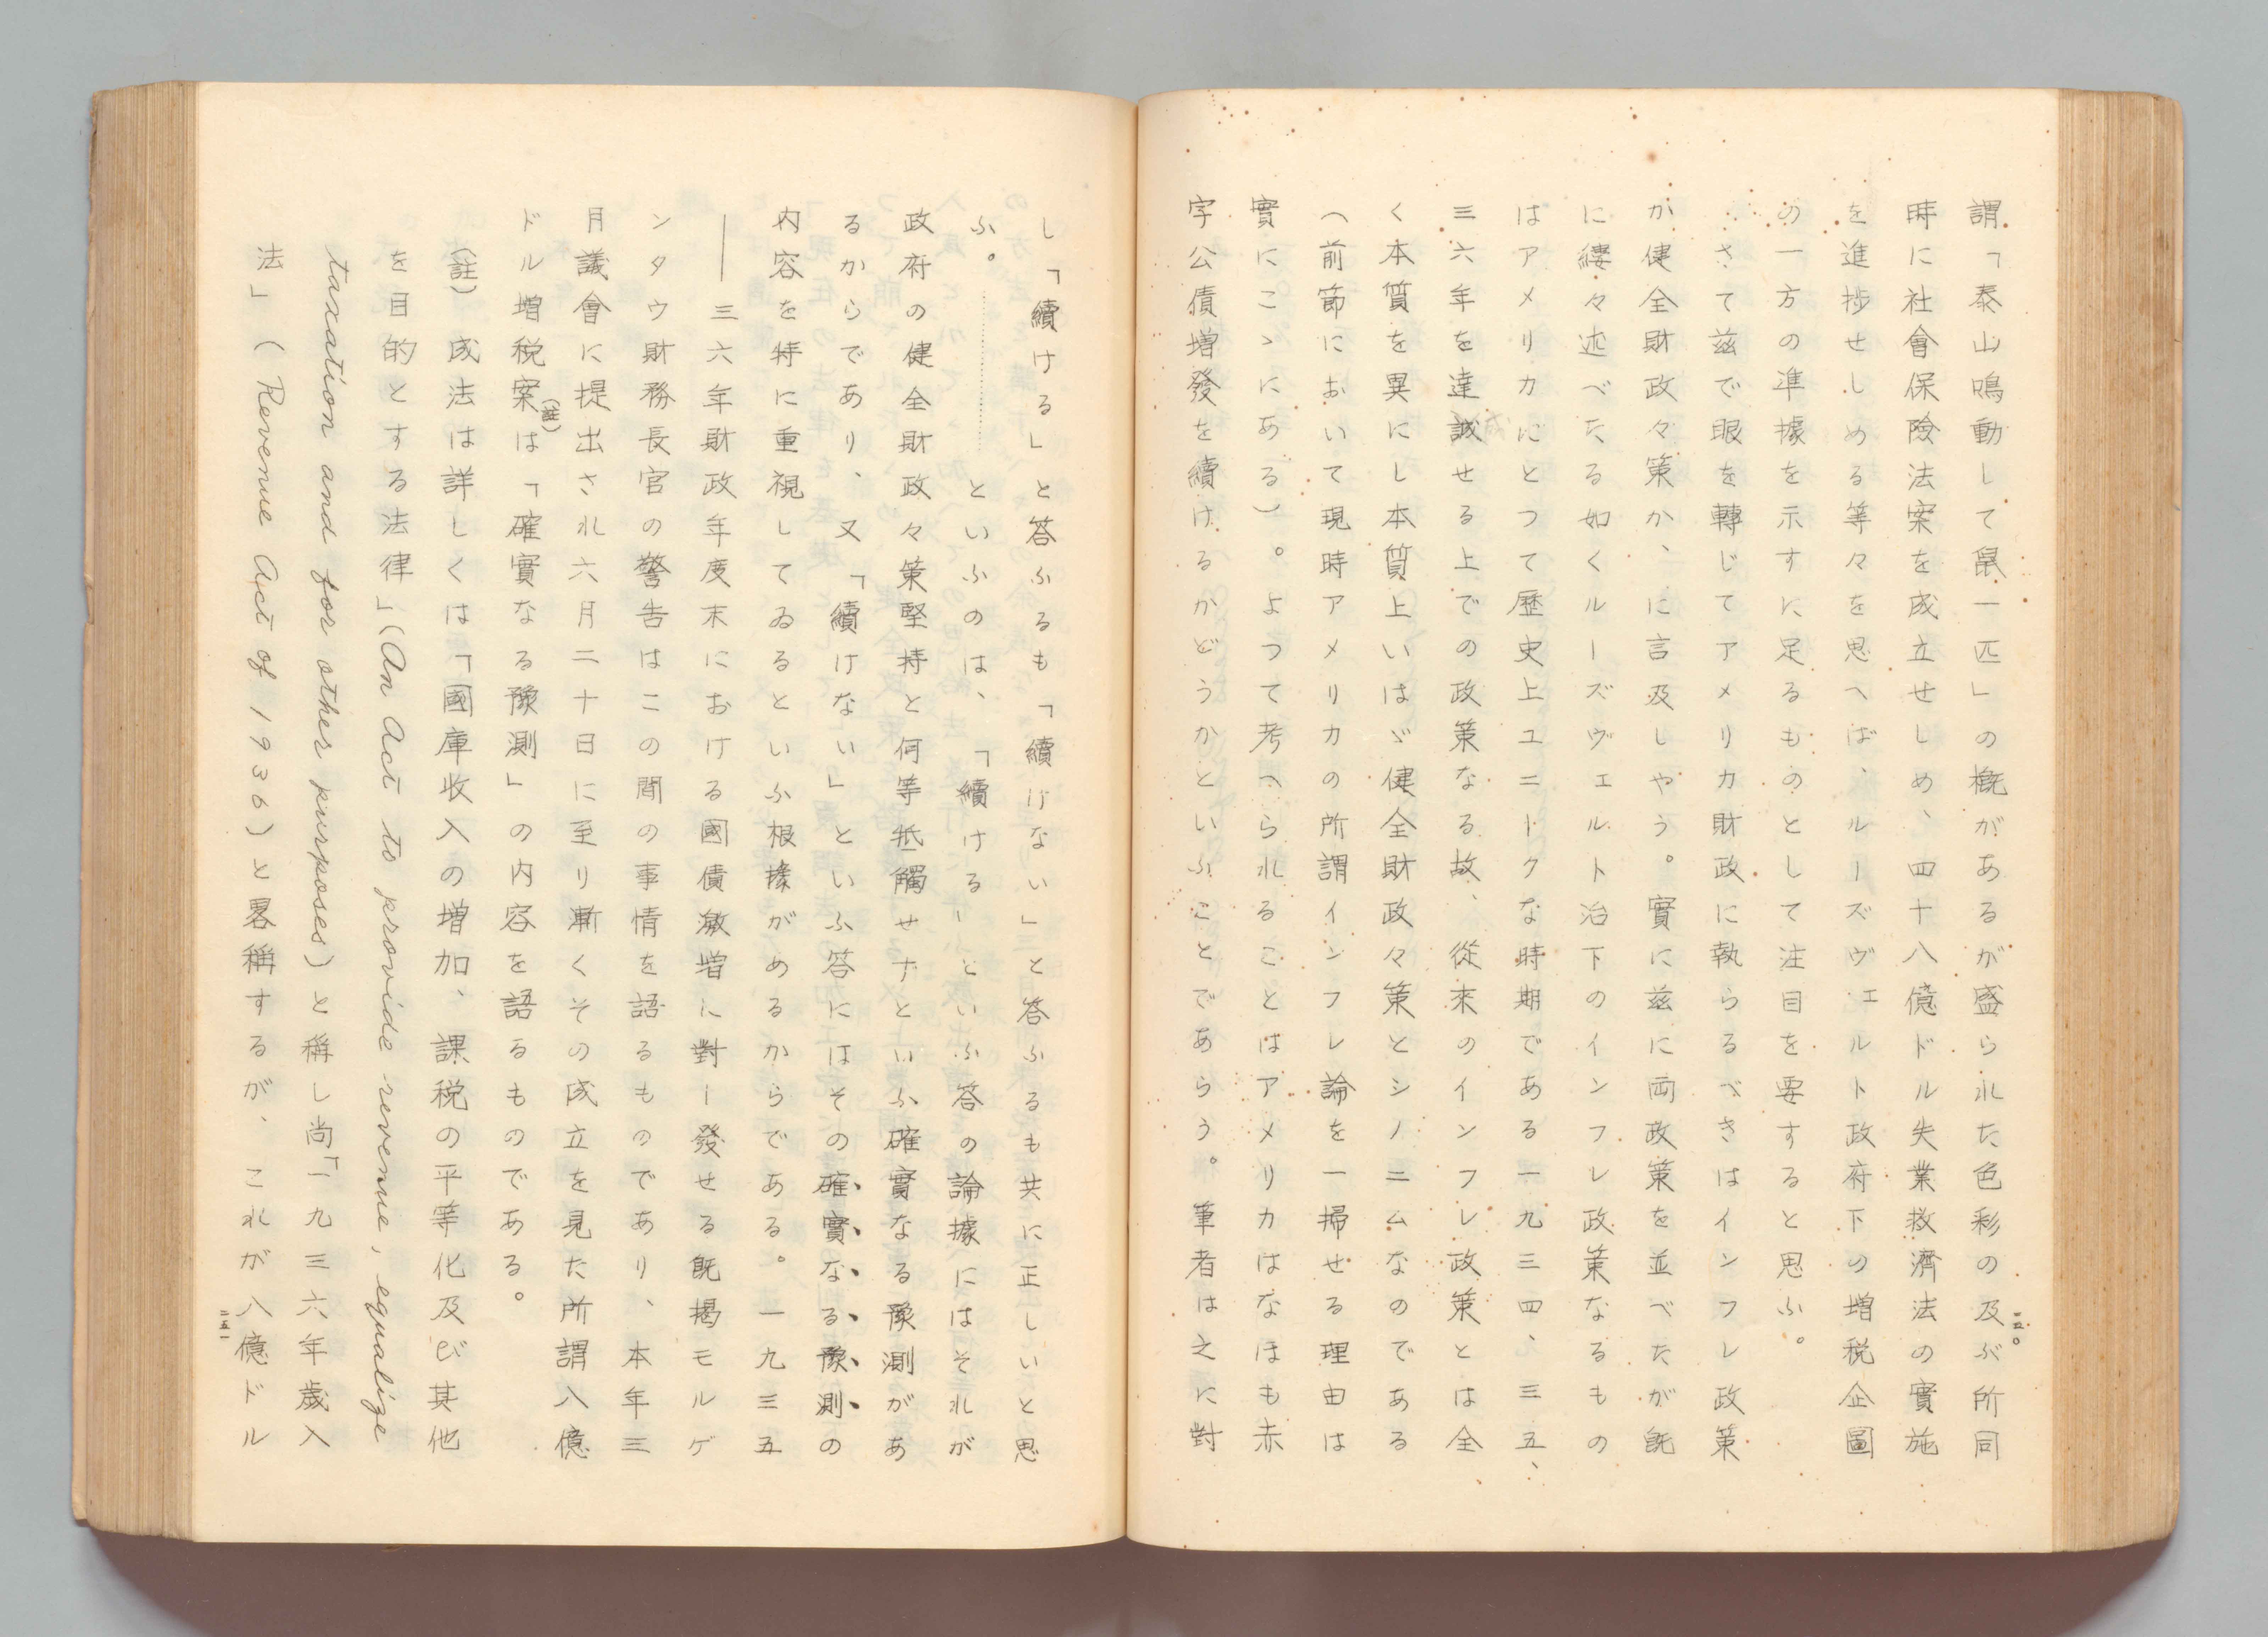 謂「泰山鳴動して鼠一匹」の概があるが盛られた色彩の及ぶ所同
時に社會保險法案を成立せしめ、四十八億ドル失業救濟法の實施
を進捗せしめる等々を思へば、ルーズヴェルト政府下の増税企圖
の一方の準據を示すに足るものとして注目を要すると思ふ。
さて茲で眼を轉じてアメリカ財政に執らるべきはインフレ政策
か健全財政々策か、に言及しやう。實に茲に両政策を並べたが既
に縷々述べたる如くルーズヴェルト治下のインフレ政策なるもの
はアメリカにとつて歴史上ユニークな時期である一九三四、三五、
三六年を達誠せる上での政策なる故、從來のインフレ政策とは全
く本質を異にし本質上いはゞ健全財政々策とシノニムなのである
（前節において現時アメリカの所謂インフレ論を一掃せる理由は
實にこゝにある）。よつて考へられることはアメリカはなほも赤
字公債増發を續けるかどうかといふことであらう。筆者は之に對
一五〇
し「續ける」と答ふるも「續けない」と答ふるも共に正しいと思
ふ。…………といふのは、「續ける」といふ答の論據にはそれが
政府の健全財政々策堅持と何等抵觸せずといふ確實なる豫測があ
るからであり、又「續けない」といふ答にはその確實なる豫測の
内容を特に重視してゐるといふ根據があるからである。一九三五
――三六年財政年度末における國債激増に對し發せる既掲モルゲ
ンタウ財務長官の警告はこの間の事情を語るものであり、本年三
月議會に提出され六月二十日に至り漸くその成立を見た所謂八億
ドル増税案（註）は「確實なる豫測」の内容を語るものである。
（註）成法は詳しくは「國庫收入の増加、課税の平等化及び其他
を目的とする法律」（An Act to provide revenue, equalize
taxation and for other purposes）と稱し尚「一九三六年歳入
法」（Revenue Act of 1936）と畧稱するが、これが八億ドル
一五一